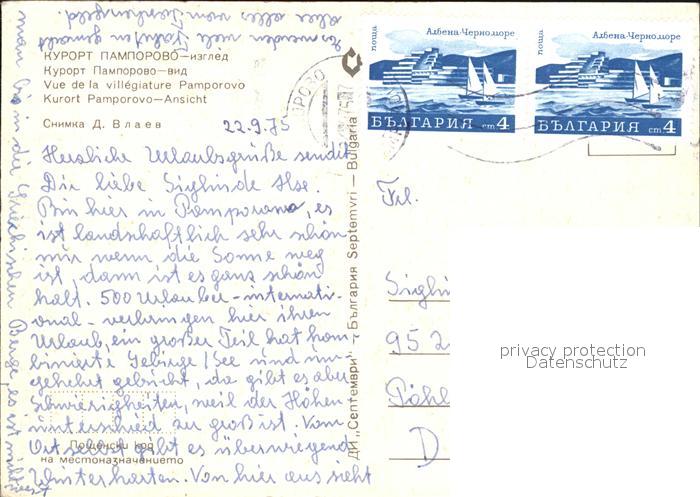 КУРОРТ ПАМПОРОВО—изглед
Курорт Пампорово—вид
Vue de la villégiature Pamporovo
Kurort Pamporovo—Ansicht
Снимка Д. Влаев
22.9.75
Herzliche Urlaubsgrüße sendet
Dir liebe Siglinde Ilse.
Bin hier in Pamporowo, es
ist landschaftlich sehr schön
nur wenn die Sonne weg
ist, dann ist es ganz schön
kalt. 500 Urlauber - internati-
onal - verbringen hier ihren
Urlaub, ein großer Teil hat kom
binierte Gebirge/See und um-
gekehrt gebucht, da gibt es aber
Schwierigkeiten, weil der Höhen-
unterschied zu groß ist. Vom
Ort selbst gibt es überwiegend
Winterkarten. Von hier aus sieht
man bis in die Griechischen Berge, es ist nicht
werden viel Fahrten gemacht
aber alles vom
Пощенски код
на местоназначението
ДИ „Септември" - България Septemvri — Bulgaria
поща
Албена-Черноморе
БЪЛГАРИЯ ст 4
поща
Албена-Черноморе
БЪЛГАРИЯ ст 4
Frl.
Siglin
952
Pöhl
D
privacy protection
Datenschutz